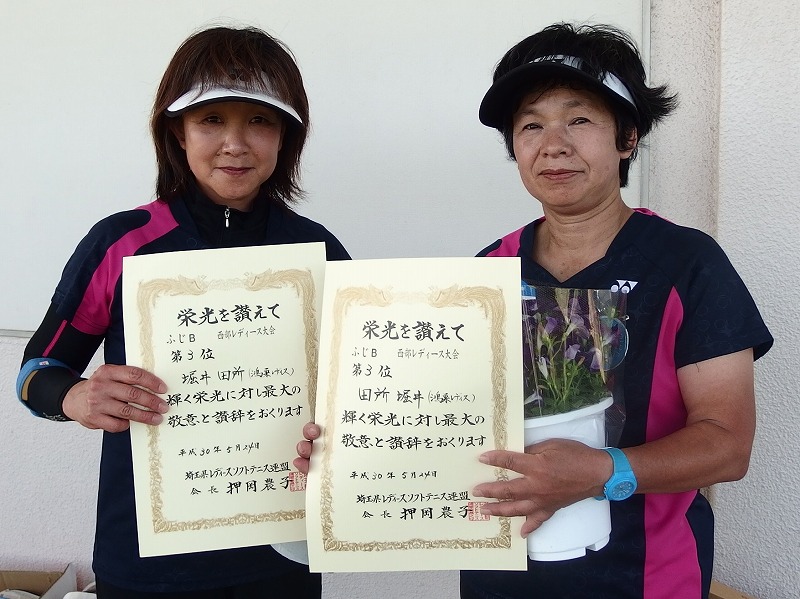 栄光を讃えて
ふじB 西部レディース大会
第3位
堀井 田所(鴻巣レディス)
輝く栄光に対し最大の
敬意と讃辞をおくります
平成30年5月24日
埼玉県レディースソフトテニス連盟
会長 押岡農子
栄光を讃えて
ふじB 西部レディース大会
第3位
田所 堀井(鴻巣レディス)
輝く栄光に対し最大の
敬意と讃辞をおくります
平成30年5月24日
埼玉県レディースソフトテニス連盟
会長 押岡農子
YONEX